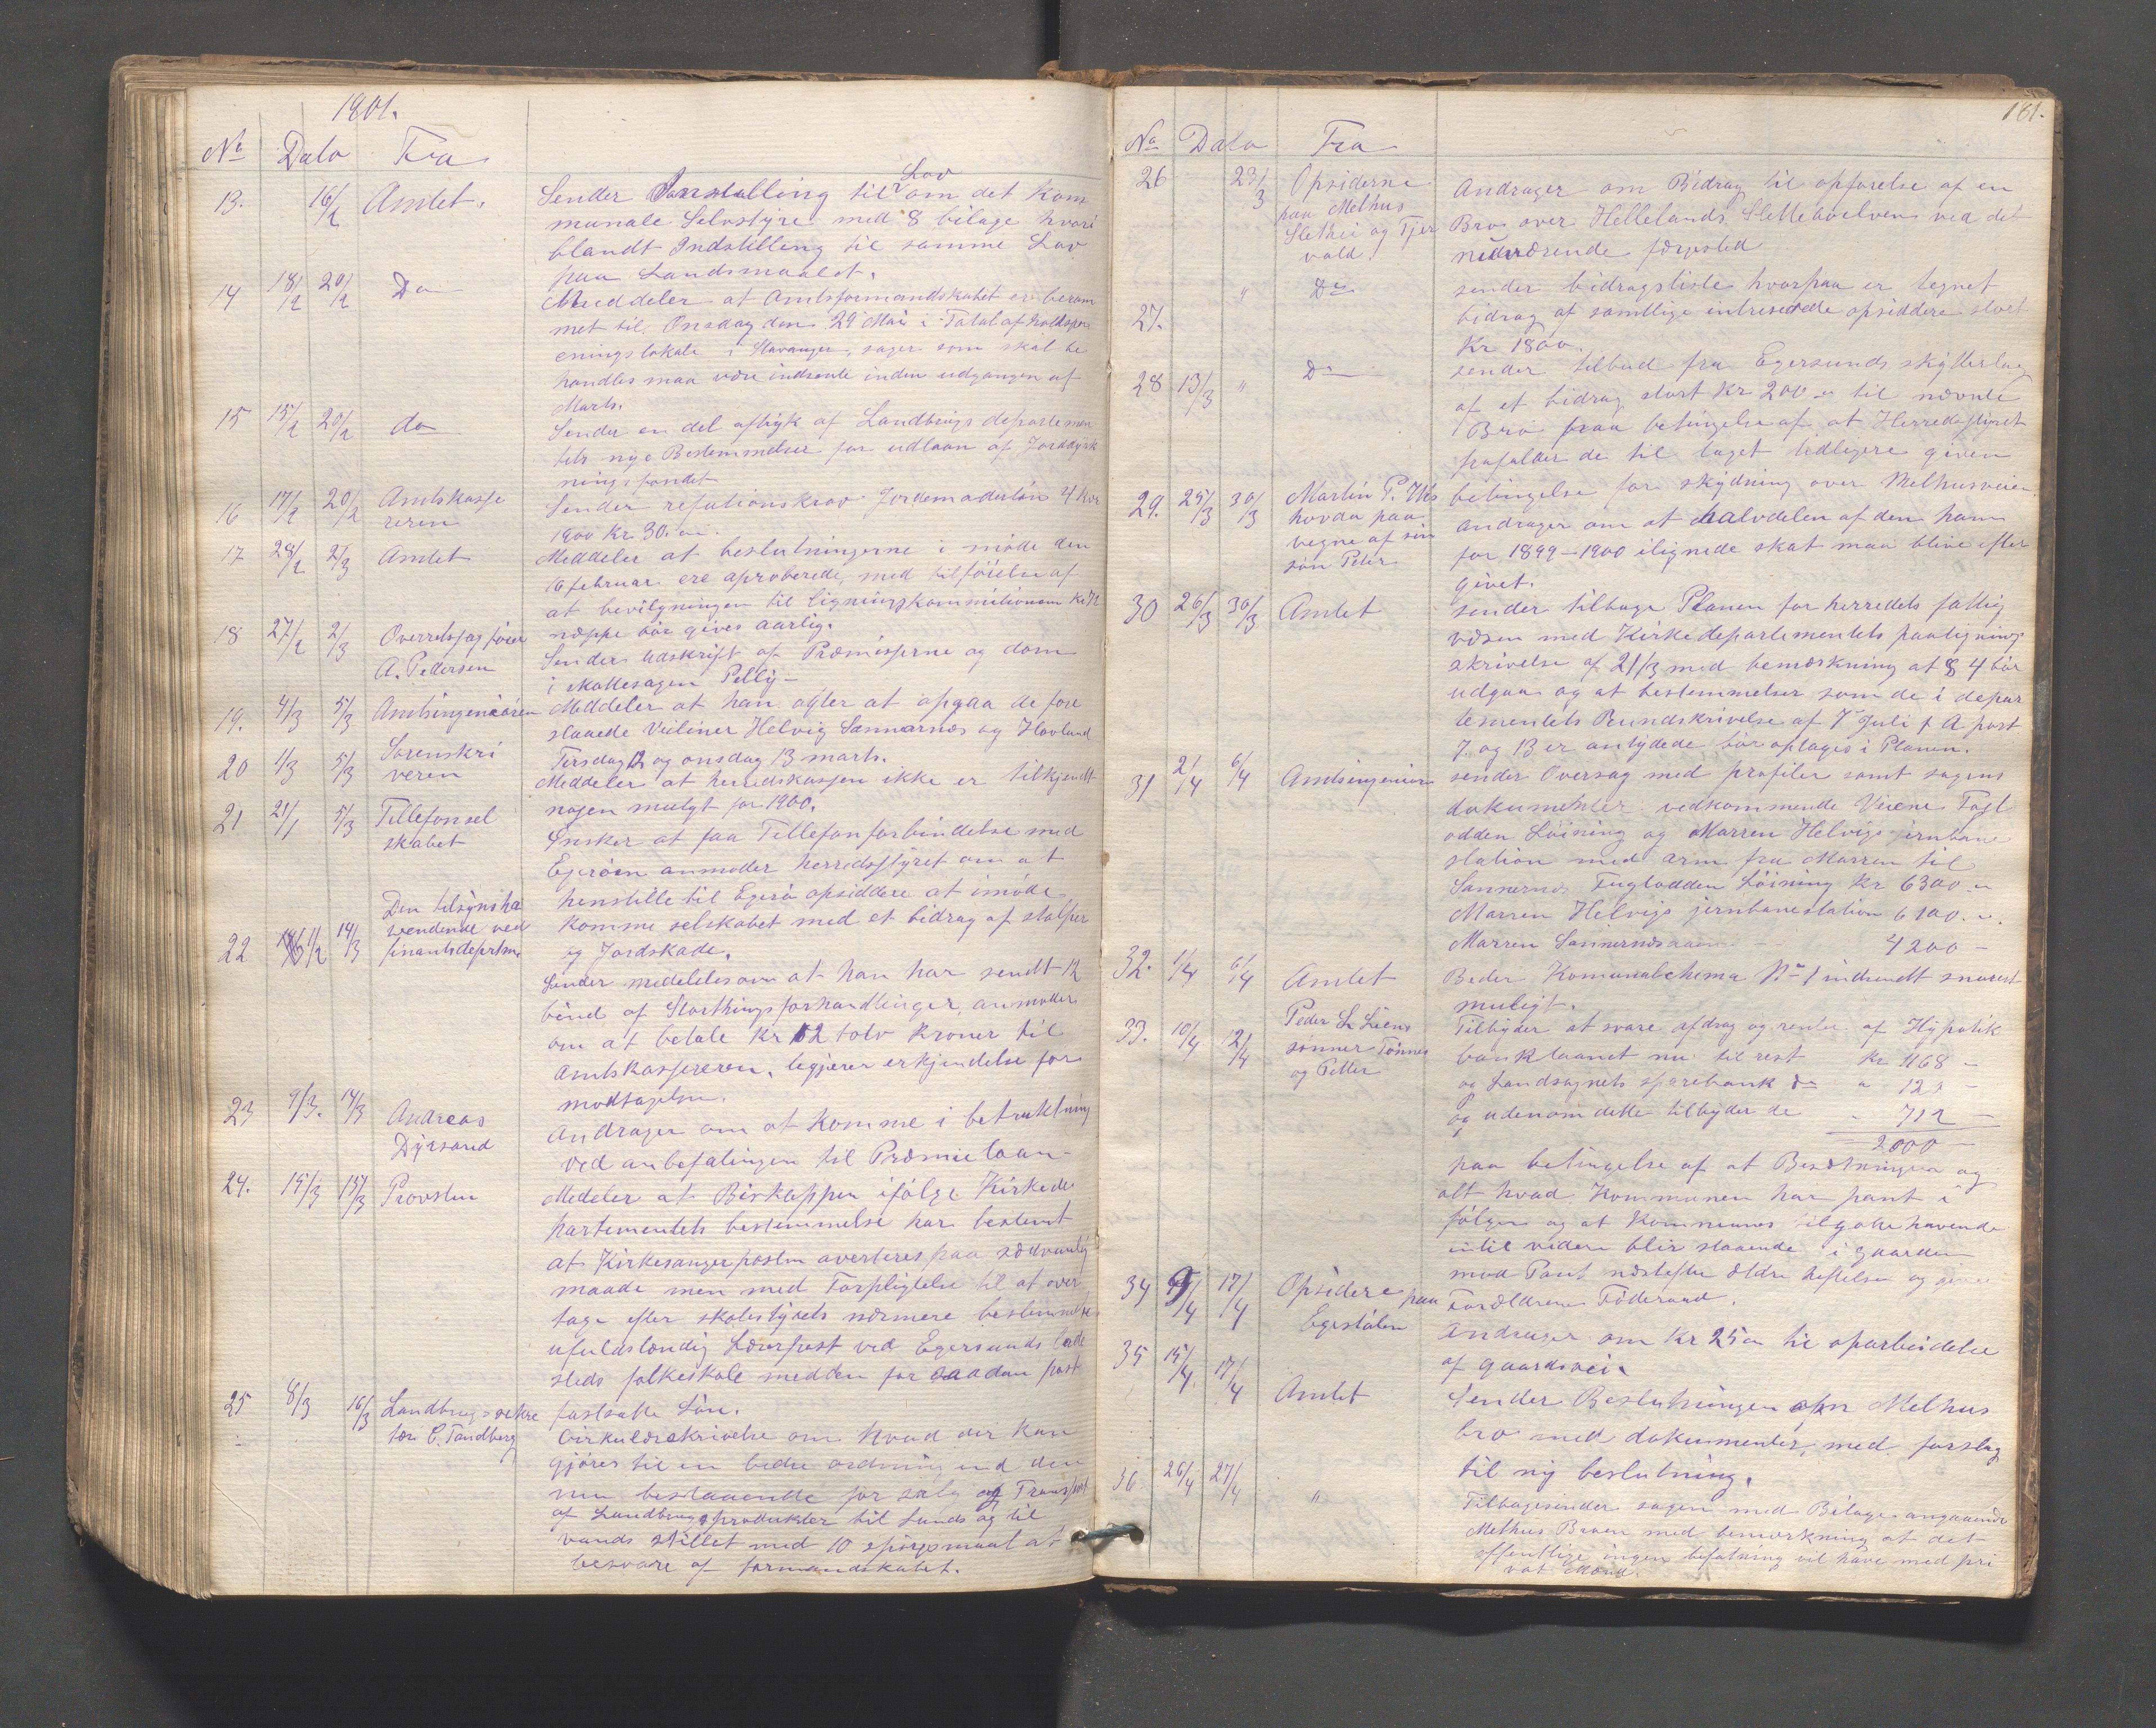 1901.
No Dato Fra
13. 16/2 Amtet. Sender Indstilling til Lov om det kom
munale Selvstyre med 8 bilage hvori
blandt Indstilling til samme Lov
paa Landsmaalet.
14 18/2 20/2 Do Meddeler at Amtsformandskabet er beram
met til Onsdag den 29 Mai i Totalafholdsfor
eningslokale i Stavanger, sager som skal be
handles maa være indsente inden udgangen af
Marts.
15 15/2 20/2 do Sender en del aftryk af Landbrugs departemen
tets nye Bestemmelser for udlaan af Jorddyrk
ningsfondet
16 17/2 20/2 Amtskasse
reren Sender refutionskrav Jordemoderløn 4 kv
1900 Kr 30.
17 28/2 2/3 Amtet Meddeler at beslutningerne i møde den
16 februar ere aproberede, med tilføielse af
at bevilgningen til ligningskommitionen Kr 72
næppe bør gives aarlig.
18 27/2 2/3 Overretssagfører
A. Pedersen Sender Udskrift af Præmisserne og dom
i Skattesagen Pelly
19. 4/3 5/3 Amtsingeniøren Meddeler at han agter at opgaa de fore
slaaede Veiliner Helvig Sannarnæs og Hovland
Tirsdag 12 og onsdag 13 marts.
20 1/3 5/3 Sorenskri
veren Meddeler at herredskassen ikke er tilkjendt
nogen mulgt for 1900.
21 21/1 5/3 Tellefonsel
skabet Ønsker at faa Tellefonforbindelse med
Egerøen anmoder herredsstyret om at
henstille til Egerø opsiddere at imøde
komme selskabet med et bidrag af stolper
og Jordskade.
22 14/3 Den tilsynsha
vendende ved
finantsdepartm. Sender meddelelse om at han har sendt 12
bind af Storthingsforhandlinger, anmoder
om at betale Kr 12 tolv Kroner til
Amtskassereren, begjærer erkjendelse for
modtagelsen.
23 9/3. 14/3 Andreas
Dyrsand Andrager om at komme i betraktning
ved anbefalingen til Præmielaan
24. 15/3 15/3 Provsten Medeler at Biskoppen ifølge Kirkede
partementets bestemmelse har bestemt
at Kirkesangerposten averteres paa sædvanlig
maade men med Forpligtelse til at over
tage efter skolestyrets nærmere bestemmelse
ufuldstændig Lærerpost ved Egersunds lade
steds folkeskole med den for saadan post
fastsatte Løn.
25 8/3 16/3 Landbrugssekre
tær C. Tandberg Cirkulærskrivelse om hvad der kan
gjøres til en bedre ordning end den
nu bestaaende for salg og Transport
af Landbrugsprodukter til Lands og til
vands stillet med 10 spørgsmaal at
besvare af formandskabet.
181.
No Dato Fra
26 23/3 Opsiderne
paa Melhus
Slethei og Tjer
vold. Andrager om Bidrag til opførelse af en
Bro over Hellelands Slettebøelven ved det
nuværende færgested
27. " Do sender bidragsliste hvorpaa er tegnet
bidrag af samtlige intreserede opsiddere stort
Kr 1800.
28 13/3 " Do sender tilbud fra Egersunds skytterlag
af et bidrag stort Kr 200 til nævnte
Bro paa betingelse af at Herredsstyret
frafalder de til laget tidligere given
betingelse for skydning over Melhusveien
29. 25/3 30/3 Martin P.
hovda paa
vegne af sin
søn Peter andrager om at halvdelen af den ham
for 1899-1900 ilignede skat maa blive efter
givet.
30 26/3 30/3 Amtet sender tilbage Planen for herredets fattig
væsen med Kirkedepartementets paategning
skrivelse af 21/3 med bemærkning at § 4 bør
udgaa og at bestemmelser som de i depar
tementets Rundskrivelse af 7 Juli f A post
7. og 13 er antydede bør optages i Planen.
31 2/4 6/4 Amtsingeniøren sender Oversag med profiler samt sagens
dokumenter vedkommende Veiene Fugl
odden Løining og Marren Helvigs jernbane
station med arm fra Marren til
Sannernes Fuglodden Løining Kr 6300
Marren Helvigs jernbanestation 6100.
Marren Sannernes 4200
32. 1/4 6/4 Amtet Beder Komunalschema No 1 indsendt snarest
muligt.
33. 10/4 12/4 Peder L Liens
sønner Tønnes
og Petter Tilbyder at svare afdrag og renter af Hypotek
banklaanet nu til rest Kr 1168
og Landsognets sparebank do 121
og udenom dette tilbyder de 712
2000
paa betingelse af at Besætningen og
alt hvad Kommunen har pant i
følger og at Kommunens tilgodehavende
intil videre blir staaende i gaarden
mod Pant næstefter ældre heftelser og
Forældrenes Føderaad.
34 9/4 17/4 Opsidere paa
Egestølen Andrager om Kr 250 til oparbeidelse
af gaardsvei.
35 15/4 17/4 Amtet Sender Beslutningen om Melhus
bro med dokumenter, med forslag
til ny beslutning.
36 26/4 27/4 " Tilbagesender sagen med Bilage angaaende
Melhus Broen med bemærkning at det
offentlige ingen befatning vil have med pri
vat